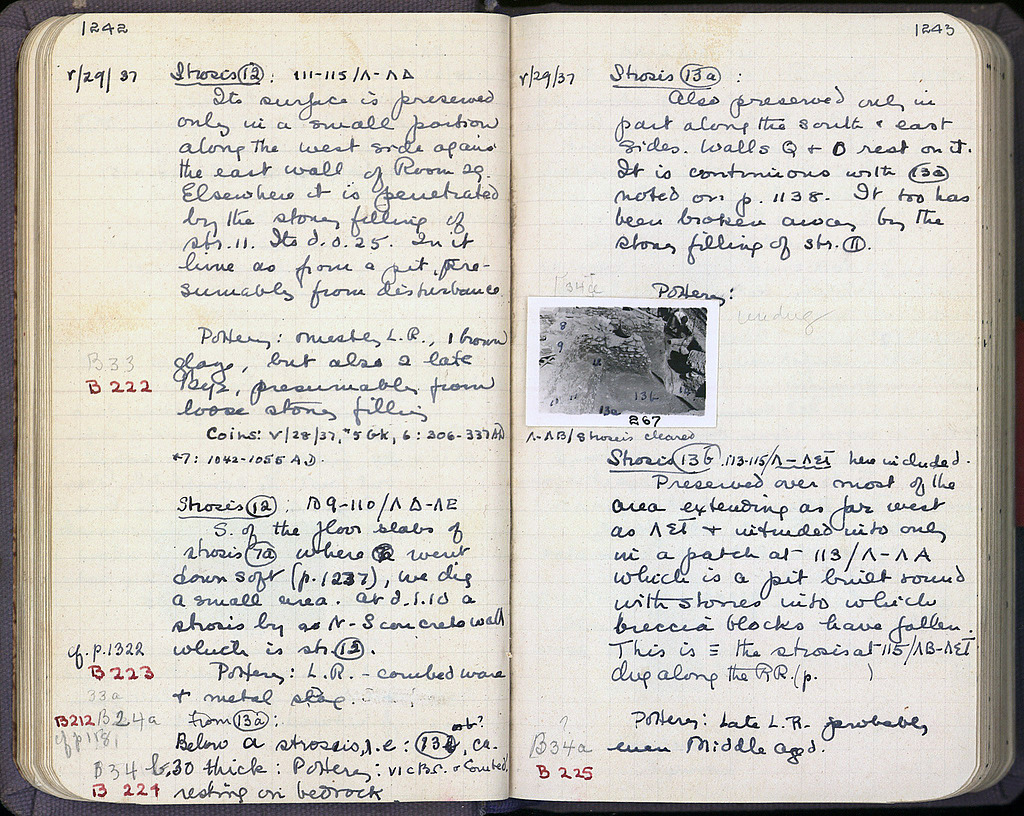 1242
V/29/37 Strosis 12 : 111-115/Λ-ΛΔ
Its surface is preserved
only in a small portion
along the west side against
the east wall of Room 29.
Elsewhere it is penetrated
by the stoney filling of
str. 11. Its d. 0.25. In it
lime as from a pit, pre-
sumably from disturbance.
Pottery: mostly L.R., 1 brown
B33
glaze, but also 2 late
B 222
Byz, presumably from
loose stoney filling
Coins: V/28/37, #5 Gk, 6: 306-337 AD
#7: 1042-1055 A.D.
Strosis 12 : 109-110/ΛΔ-ΛΕ
S. of the floor slabs of
strosis 7a where went
down soft (p. 1237), we dig
a small area. At d. 1.10 a
strosis by so N-S concrete wall
cf. p. 1322 which is str. 12.
B 223 Pottery: L.R. - combed ware
33a
+ metal slag.
B212 B24a From 13a :
or b?
Below a strosis, i.e: 13, ca.
B34 b .30 thick: Pottery: VI c B.C. & Combed,
B 224 resting on bedrock
1243
V/29/37 Strosis 13a :
Also preserved only in
part along the south & east
sides. Walls Q + O rest on it.
It is continuous with 13a
noted on p. 1138. It too has
been broken away by the
stoney filling of str. 11.
Pottery:
undug
8
9
13b
13a
267
Λ-ΛB/Strosis cleared
Strosis 13b 113-115/Λ-ΛΣΤ here included.
Preserved over most of the
area extending as far west
as ΛΣΤ + intruded into only
in a patch at 113/Λ-ΛA
which is a pit built round
with stones into which
breccia blocks have fallen.
This is ≡ the strosis at 115/ΛB-ΛΣΤ
dug along the RR (p. )
?
Pottery: Late L.R. probably
B34a even Middle aged.
B 225